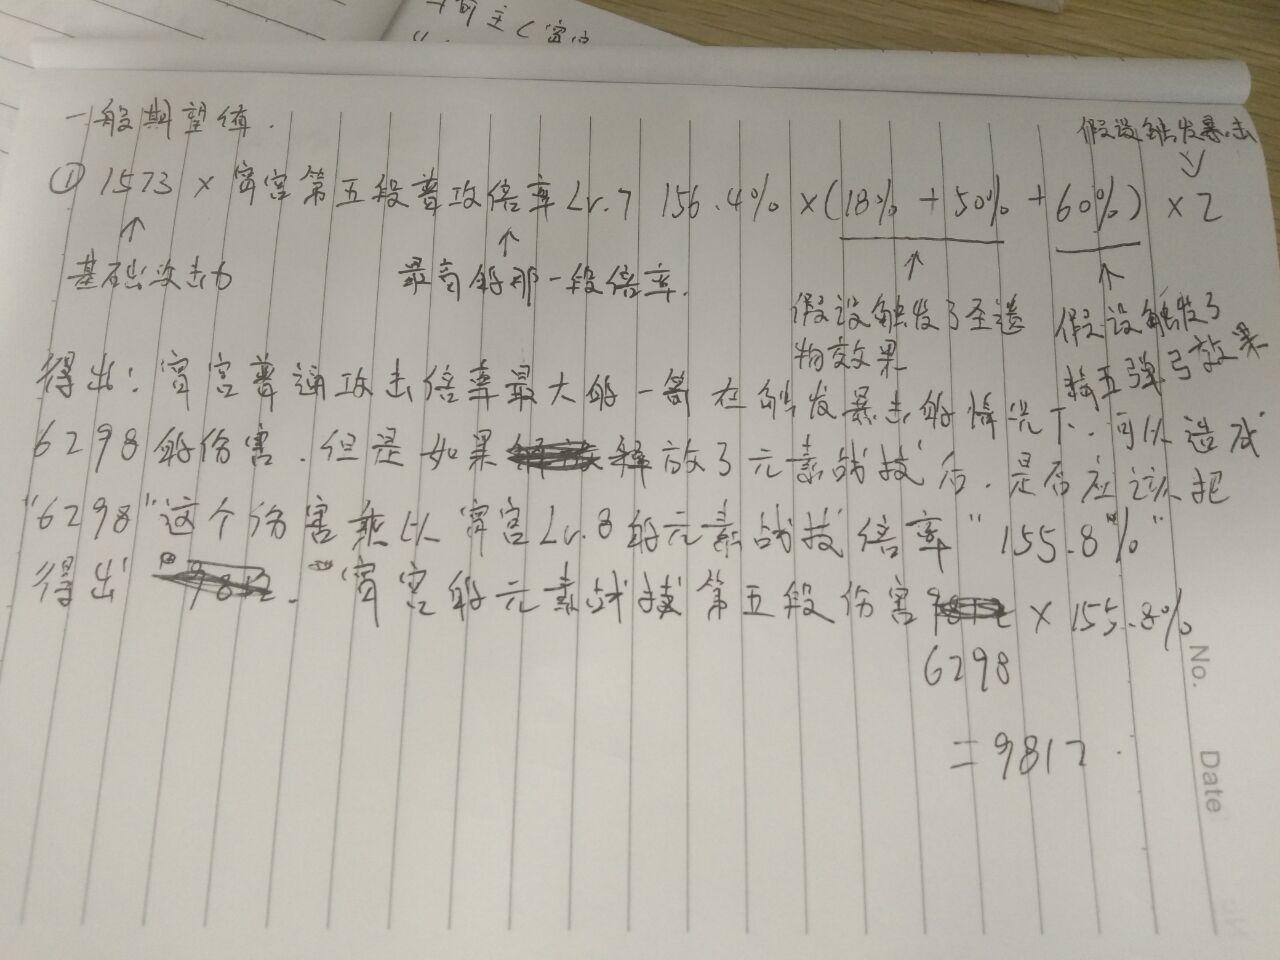 一般期望值.
假设触发暴击
① 1573 × 宵宫第五段普攻倍率Lv.7 156.4% ×(18% + 50% + 60%) × 2
基础攻击力
最高的那一段倍率.
假设触发了圣遗物套效果
假设触发了精五强弓效果
得出: 宵宫普通攻击倍率最大的一箭在触发暴击的情况下.可以造成
6298的伤害.但是如果释放了元素战技后.是否应该把
"6298"这个伤害乘以宵宫Lv.8的元素战技倍率"155.8%"
得出 宵宫的元素战技第五段伤害 × 155.8%
6298
=9812
No.
Date